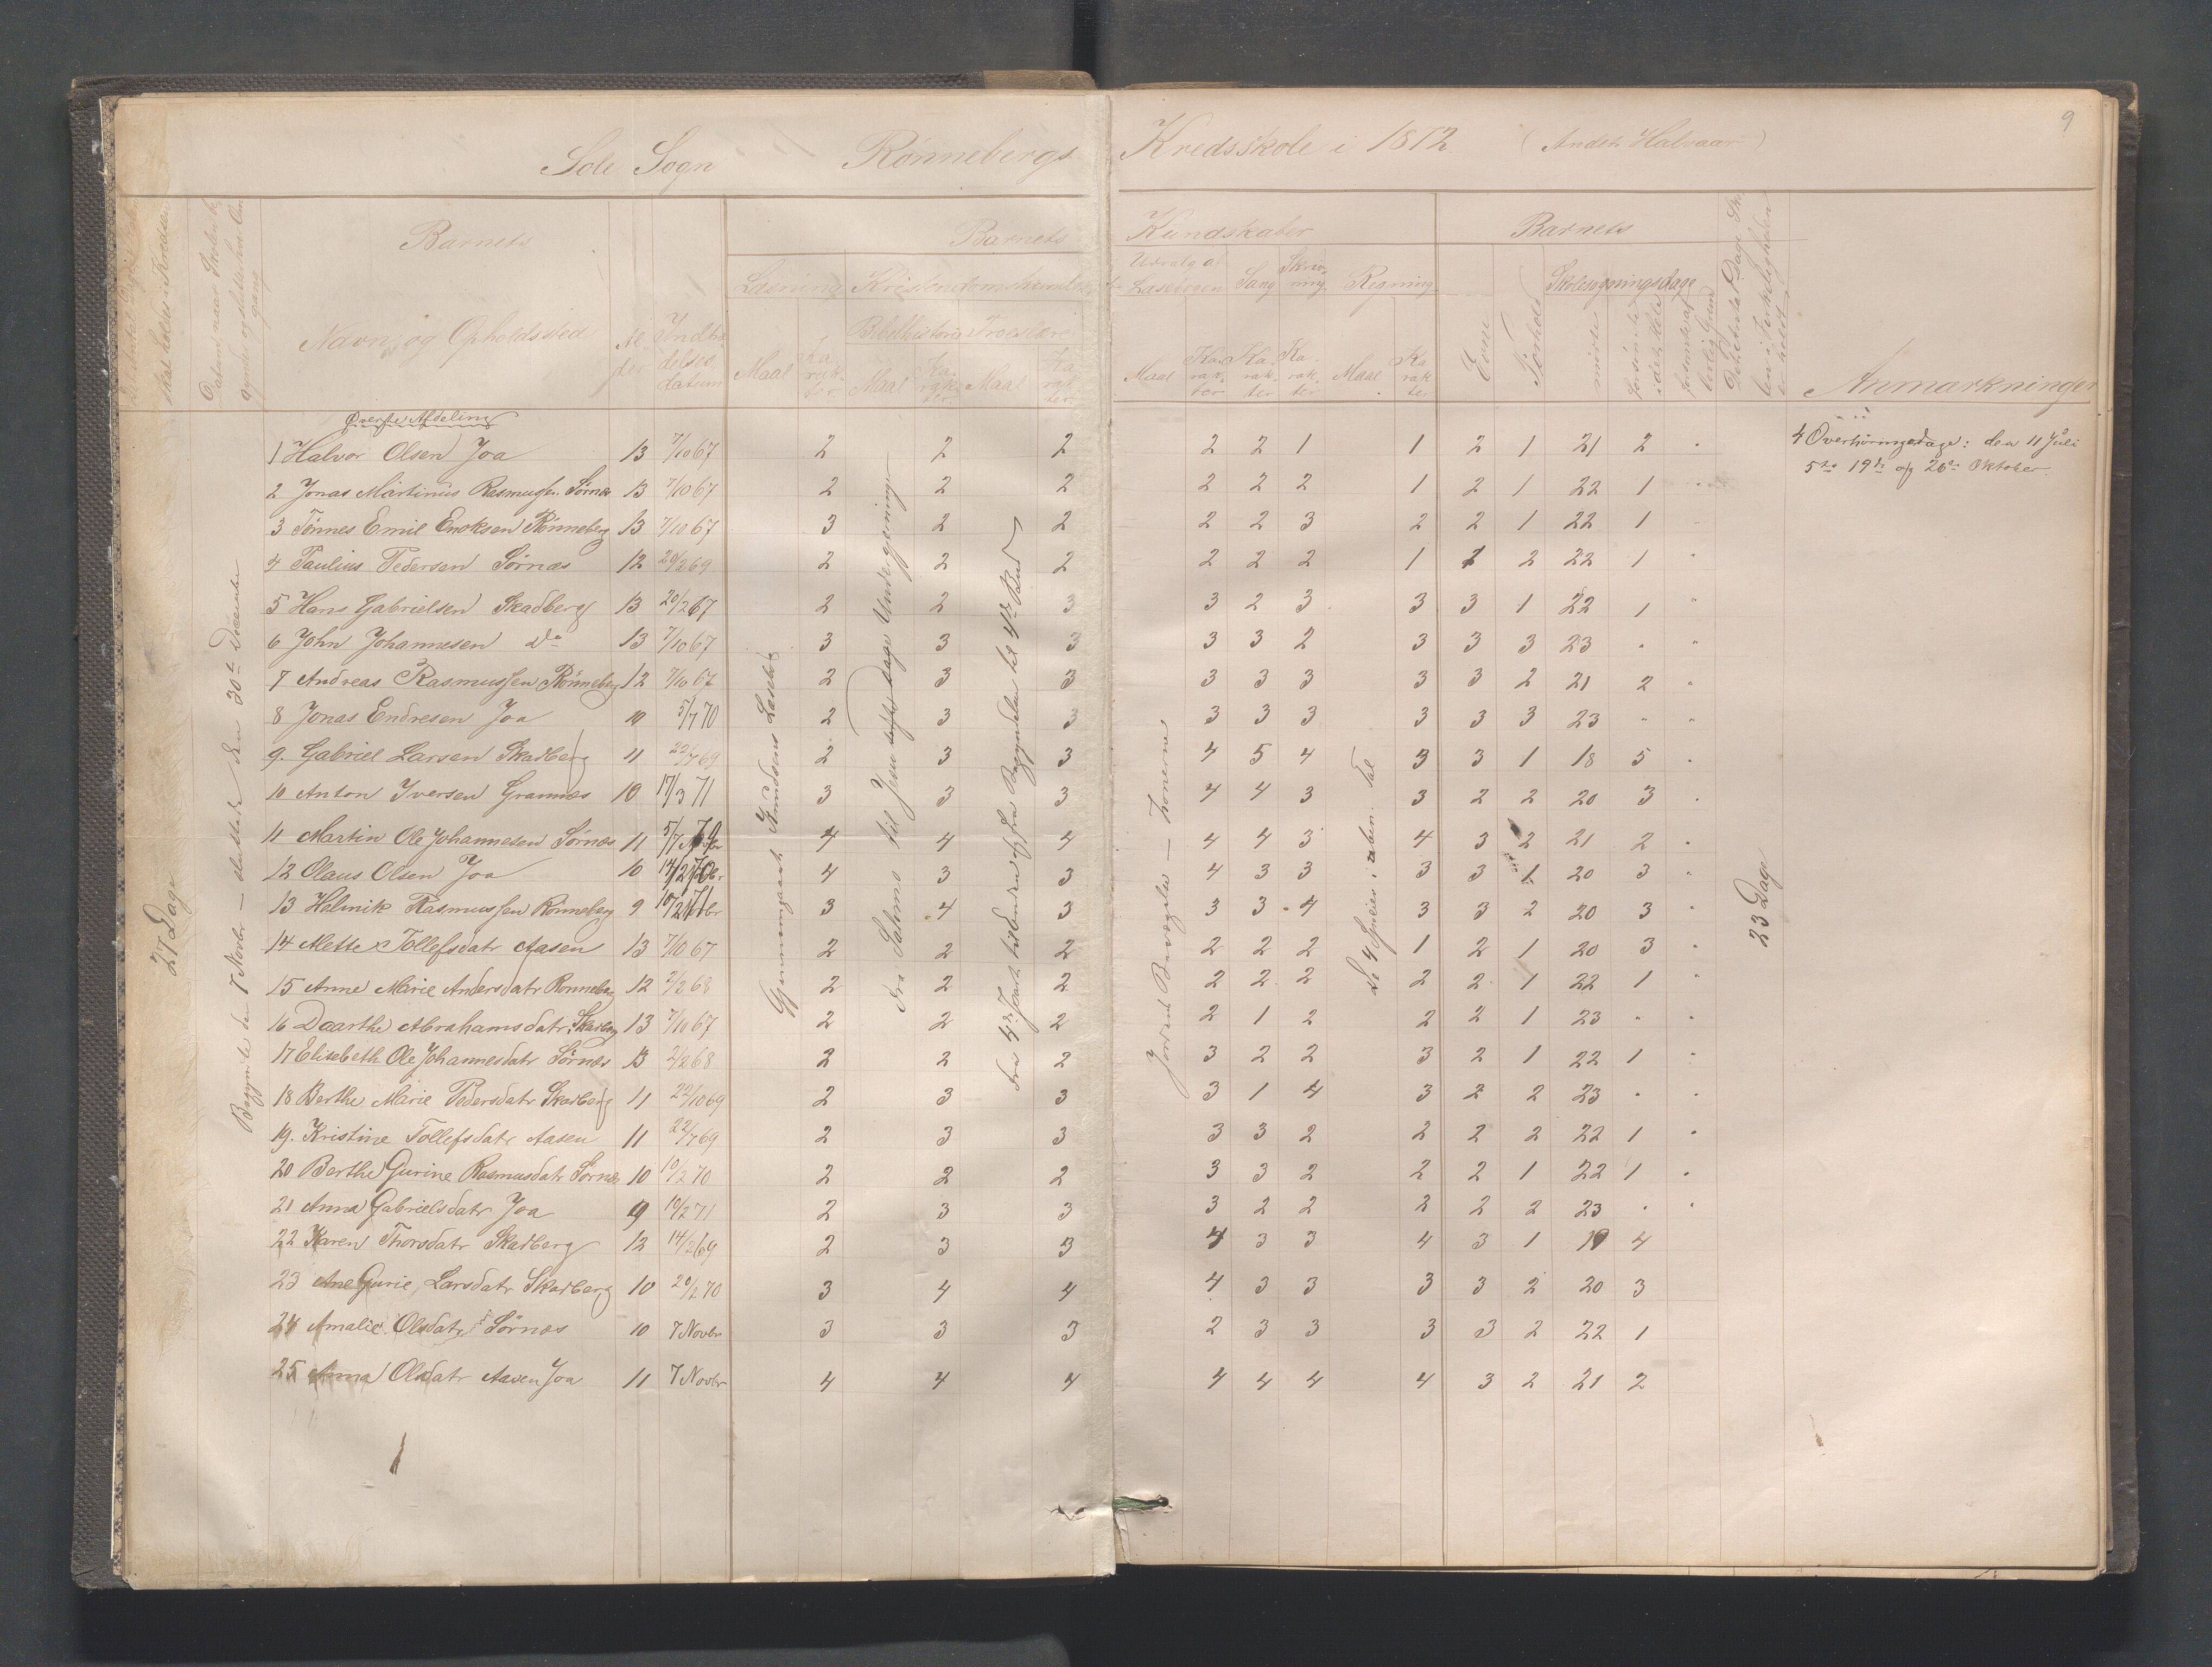 9
Sole Sogn Rønnebergs Kredsskole i 1872 (Andet Halvaar)
Barnets Barnets Kundskaber Barnets
Læsning Kristendomskundskab Udvalg af Læsebogen Sang Skrivning Regning Skolesøgningsdage
Navn og Opholdssted Alder Indtrædelsesdatum Bibelhistorie Troeslære Evne Forhold
Maal Karakter Maal Karakter Maal Karakter Maal Karakter Karakter Karakter Maal Karakter Anmærkninger
27 Dage
Begyndte den 7 Novbr — sluttede den 30te December
Gjennemgaaet Jensens Læsebog
Fra Salomo til Jesu sidste Dage Undergjerninger
Fra 4de Part til Enden og fra Begyndelsen til 4de Bud
Jordens Bevægelse — Zonerne
De 4 Specier i uben. Tal
23 Dage
Øverste Afdeling
1 Halvor Olsen Joa 13 7/10 67 2 2 2 2 2 1 1 2 1 21 2 "
4 Overhøringsdage: den 11 Juli
5te 19de og 26de Oktober
2 Jonas Martinus Rasmussen Sørnæs 13 7/10 67 2 2 2 2 2 2 1 2 1 22 1 "
3 Tønnes Emil Enoksen Rønneberg 13 7/10 67 3 2 2 2 2 3 2 2 1 22 1 "
4 Paulius Pedersen Sørnæs 12 20/2 69 2 2 2 2 2 2 1 1 2 22 1 "
5 Hans Gabrielsen Skadberg 13 20/2 67 2 2 3 3 2 3 3 3 1 22 1 "
6 John Johannesen do 13 7/10 67 3 3 3 3 3 2 3 3 3 23 " "
7 Andreas Rasmussen Rønneberg 12 7/10 67 2 3 3 3 3 3 3 3 2 21 2 "
8 Jonas Endresen Joa 10 5/7 70 2 3 3 3 3 3 3 3 3 23 " "
9. Gabriel Larsen Skadberg 11 22/7 69 2 3 3 4 5 4 3 3 1 18 5 "
10 Anton Iversen Grannæs 10 17/3 71 3 3 3 4 4 3 3 2 2 20 3 "
11 Martin Ole Johannesen Sørnæs 11 5/7 79 4 4 4 4 4 3 4 3 2 21 2 "
12 Olaus Olsen Joa 10 14/2 70 4 3 3 4 3 3 3 3 1 20 3 "
13 Helmik Rasmussen Rønneberg 9 10/2 71 3 4 3 3 3 4 3 3 2 20 3 "
14 Mette Tollefsdatr Aasen 13 7/10 67 2 2 2 2 2 2 1 2 1 20 3 "
15 Anne Marie Andersdatr Rønneberg 12 2/2 68 2 2 2 2 2 2 2 2 1 22 1 "
16 Daarthe Abrahamsdatr Skadberg 13 7/10 67 2 2 2 2 1 2 2 2 1 23 " "
17 Elisebeth Ole Johannesdatr Sørnæs 13 2/2 68 2 2 2 3 2 2 3 2 1 22 1 "
18 Berthe Marie Pedersdatr Skadberg 11 22/10 69 2 3 3 3 1 4 3 2 2 23 " "
19. Kristine Tollefsdatr Aasen 11 22/7 69 2 3 3 3 3 2 2 2 2 22 1 "
20 Berthe Gurine Rasmusdatr Sørnæs 10 10/2 70 2 2 2 3 3 2 2 2 1 22 1 "
21 Anna Gabrielsdatr Joa 9 10/2 71 2 3 3 3 2 2 2 2 2 23 " "
22 Karen Thorsdatr Skadberg 12 14/2 69 2 3 3 4 3 3 4 3 1 19 4
23 Ane Gurie Larsdatr Skadberg 10 20/2 70 3 4 4 4 3 3 3 3 2 20 3
24 Amalie Olsdatr Sørnæs 10 7 Novbr 3 3 3 2 3 3 3 3 2 22 1
25 Anna Olsdatr Aasen Joa 11 7 Novbr 4 4 4 4 4 4 4 3 2 21 2